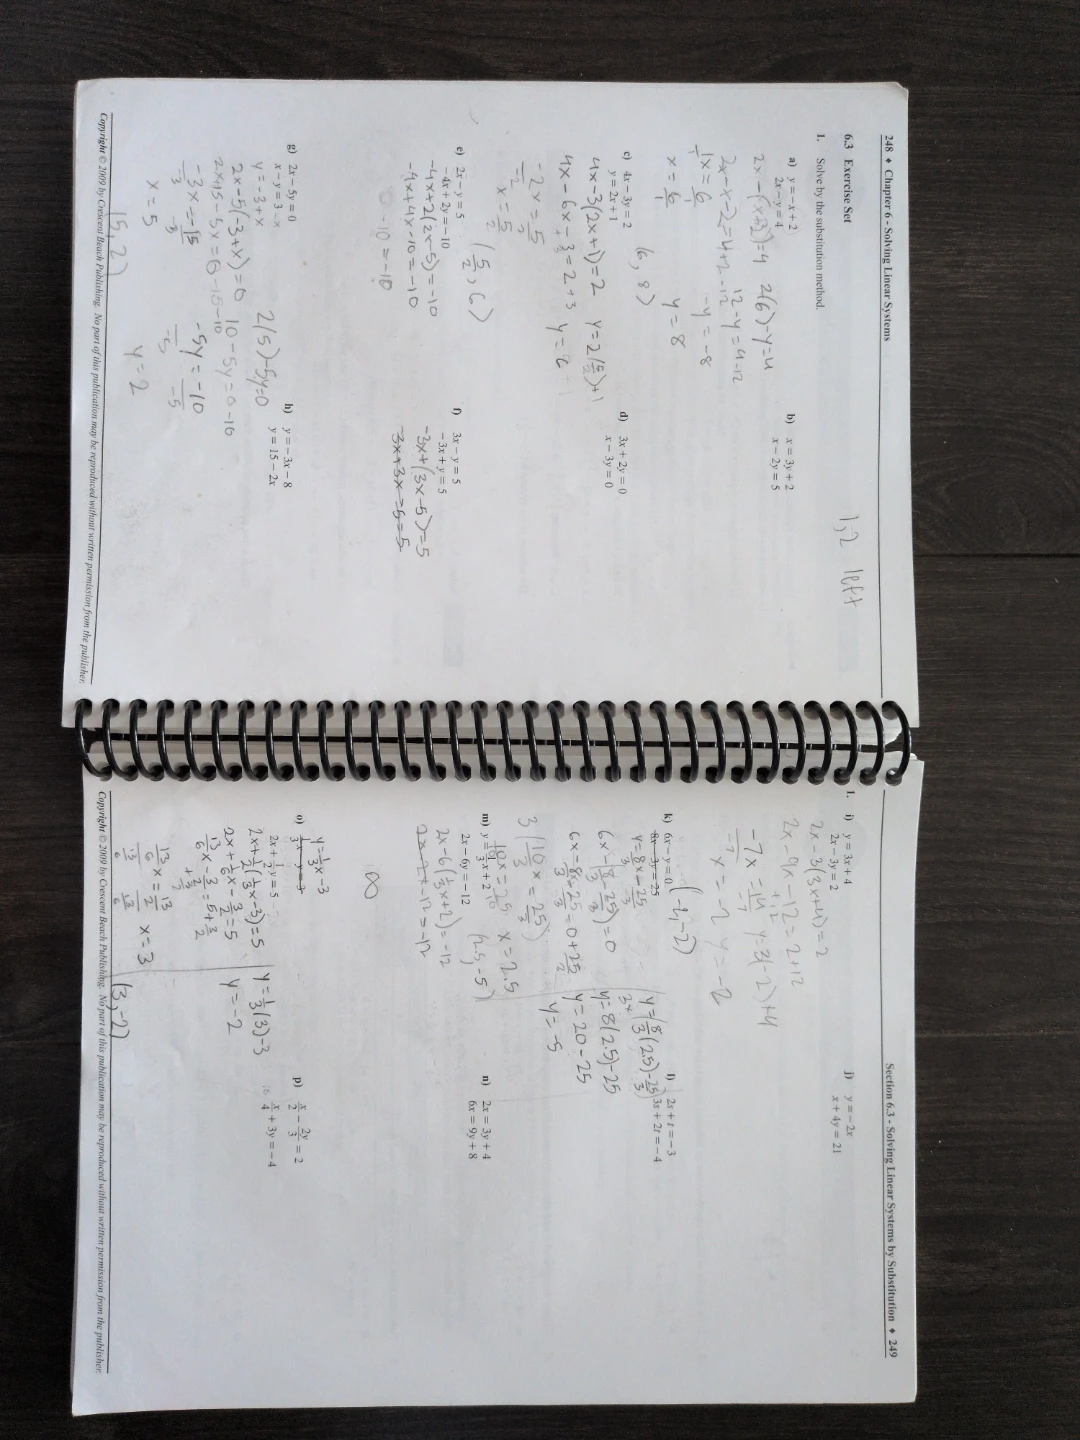 248 ♦ Chapter 6 - Solving Linear Systems
6.3 Exercise Set
1. Solve by the substitution method.
a) y = -x + 2
2x - y = 4
2x-(x+2)=4 2(6)-y=4
2x-x-2=4+2 12-y=4-12
-12
-y=-8
x=6 y=8
(6, 8)
b) x = 3y + 2
x - 2y = 5
1,2 left
c) 4x - 3y = 2
y = 2x + 1
4x-3(2x+1)=2 y=2(5/2)+1
4x-6x-3=2+3 y=6
-2x=5
x=5/2 (5/2, 6)
d) 3x + 2y = 0
x - 3y = 0
e) 2x - y = 5
-4x + 2y = -10
-4x+2(2x-5)=-10
-4x+4x-10=-10
-10=-10
f) 3x - y = 5
-3x + y = 5
-3x+(3x-5)=5
-3x+3x-5=5
g) 2x - 5y = 0
x - y = 3
y=-3+x
2x-5(-3+x)=0 2(5)-5y=0
2x+15-5x=0-15 10-5y=0-10
-10
-3x=-15 -5y=-10
-3 -3 -5 -5
x=5 y=2
(5, 2)
h) y = -3x - 8
y = 15 - 2x
Copyright © 2009 by Crescent Beach Publishing. No part of this publication may be reproduced without written permission from the publisher.
Section 6.3 - Solving Linear Systems by Substitution ♦ 249
1. i) y = 3x + 4
2x - 3y = 2
2x-3(3x+4)=2
2x-9x-12=2+12
+12
-7x=14 y=3(-2)+4
-7 -7
x=-2 y=-2
(-2,-2)
j) y = -2x
x + 4y = 21
k) 6x - y = 0
8x - 3y = 25
y=8/3x-25/3
6x-(8/3-25/3)=0
y=(8/3(2.5)-25/3)
y=8(2.5)-25
y=20-25
y=-5
3(10/3x=25/3)
10x=25 x=2.5
(2.5,-5)
l) 2s + t = -3
3s + 2t = -4
m) y = 1/3x + 2
2x - 6y = -12
2x-6(1/3x+2)=-12
2x-2x-12=-12
∞
n) 2x = 3y + 4
6x = 9y + 8
o) 1/3x - y = 3
y=1/3x-3
2x + 1/2y = 5
2x+1/2(1/3x-3)=5 y=1/3(3)-3
2x+1/6x-3/2=5 y=-2
13/6x-3/2=5+3/2
+3/2
13/6x=13/2
x=3 (3,-2)
p) x/2 - 2y/3 = 2
x/4 + 3y = -4
Copyright © 2009 by Crescent Beach Publishing. No part of this publication may be reproduced without written permission from the publisher.